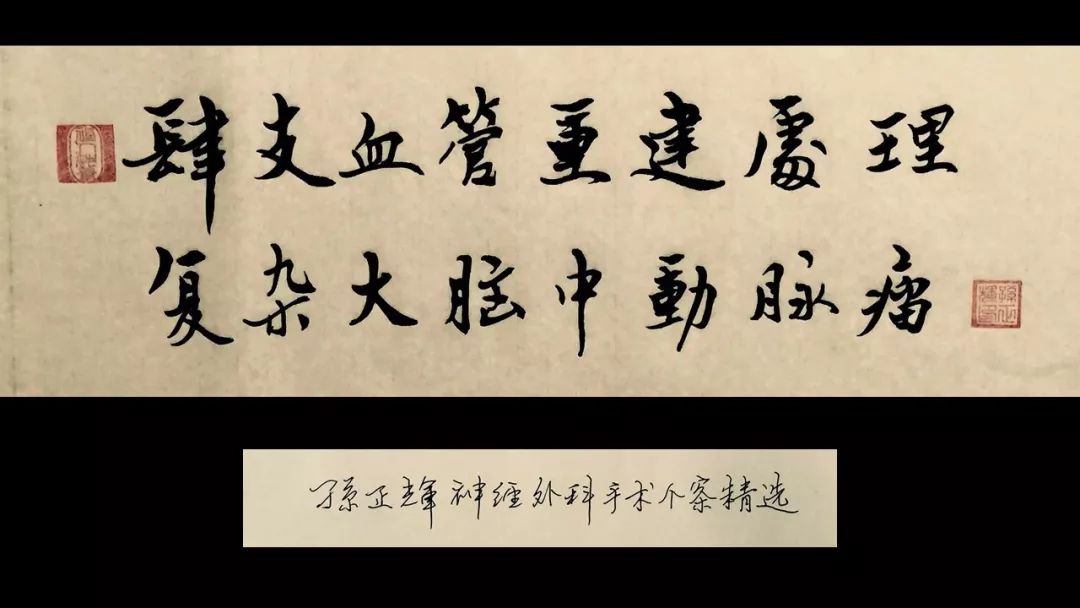 肆支血管重建處理
复杂大脑中動脉瘤
孫正辉神经外科手术个案精选